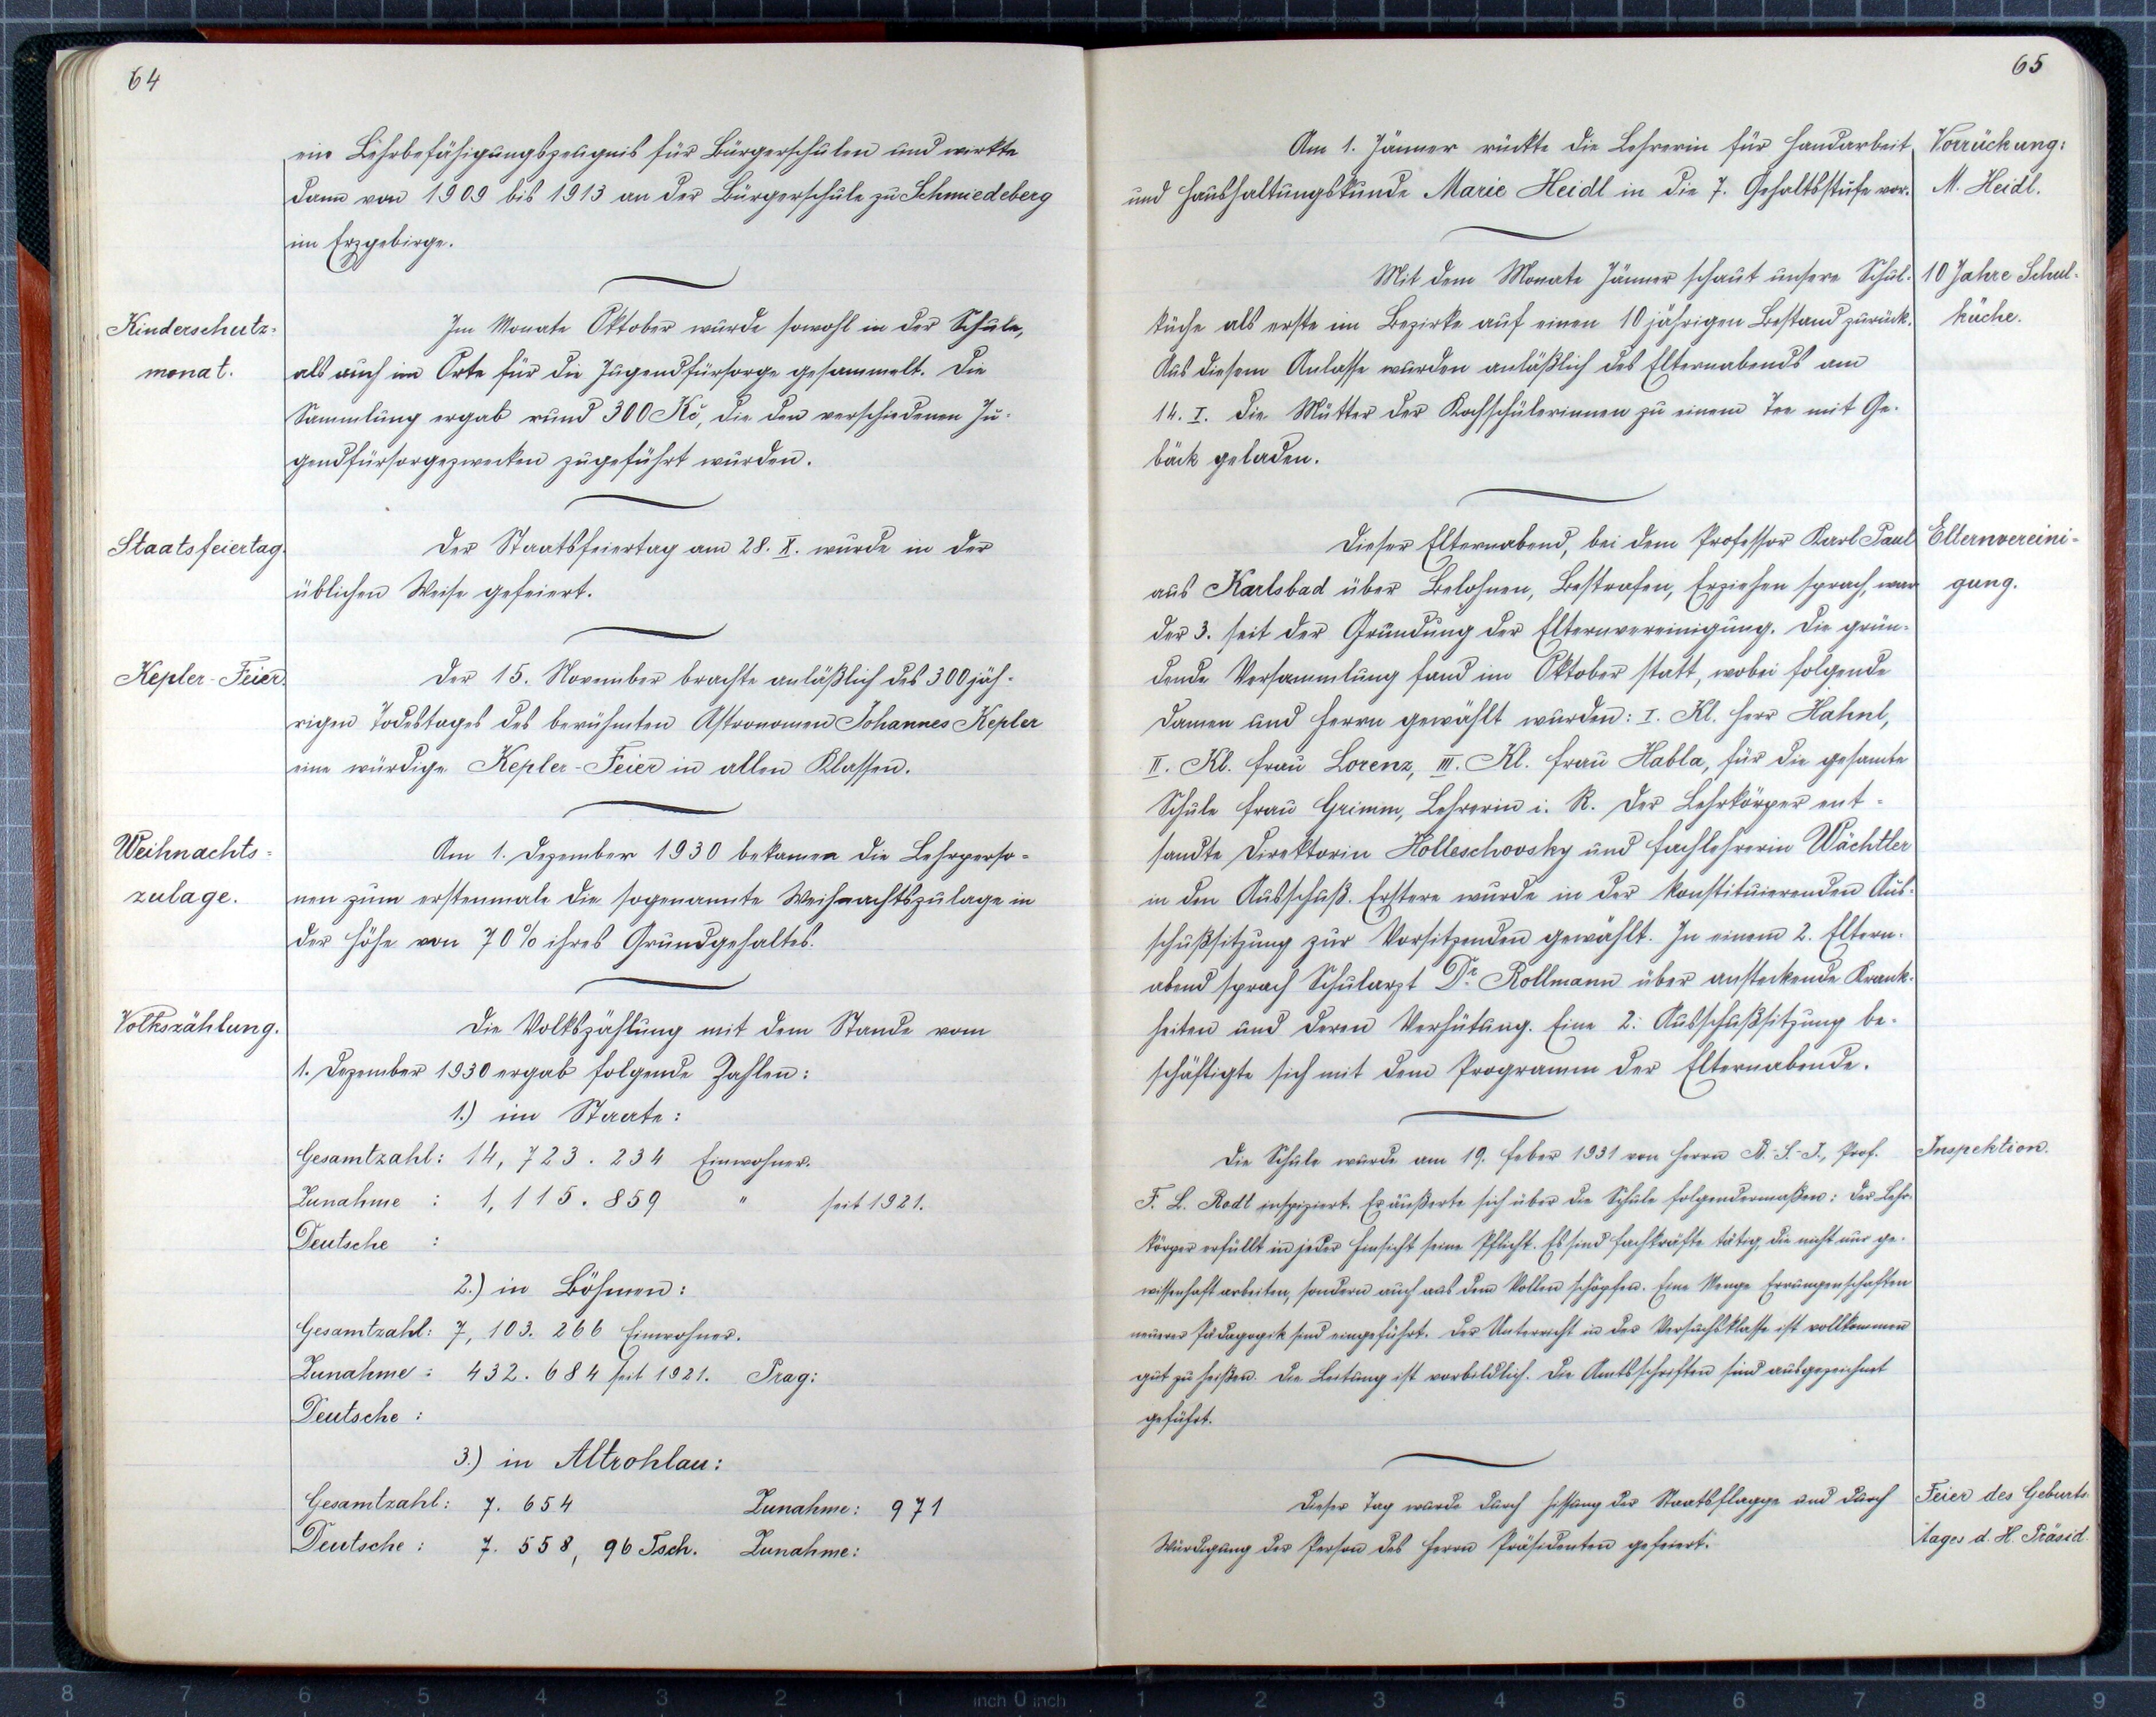 64
ein Lehrbefähigungszeugnis für Bürgerschulen und wirkte
dann von 1909 bis 1913 an der Bürgerschule zu Schmiedeberg
im Erzgebirge.
Kinderschutz-
monat.
Im Monate Oktober wurde sowohl in der Schule,
als auch im Orte für die Jugendfürsorge gesammelt. Die
Sammlung ergab rund 300 Kč, die den verschiedenen Ju-
gendfürsorgezwecken zugeführt wurden.
Staatsfeiertag.
Der Staatsfeiertag am 28. X. wurde in der
üblichen Weise gefeiert.
Kepler-Feier.
Der 15. November brachte anläßlich des 300 jäh-
rigen Todestages des berühmten Astronomen Johannes Kepler
eine würdige Kepler-Feier in allen Klassen.
Weihnachts-
zulage.
Am 1. Dezember 1930 bekamen die Lehrperso-
nen zum erstenmale die sogenannte Weihnachtszulage in
der Höhe von 70% ihres Grundgehaltes.
Volkszählung.
Die Volkszählung mit dem Stande vom
1. Dezember 1930 ergab folgende Zahlen:
1.) im Staate:
Gesamtzahl: 14,723.234 Einwohner.
Zunahme : 1,115.859 " seit 1921.
Deutsche :
2.) in Böhmen:
Gesamtzahl: 7,103.266 Einwohner.
Zunahme : 432.684 seit 1921. Prag:
Deutsche :
3.) in Altrohlau:
Gesamtzahl: 7.654 Zunahme: 971
Deutsche : 7.558, 96 Tsch. Zunahme:
65
Am 1. Jänner rückte die Lehrerin für Handarbeit
und Haushaltungskunde Marie Heidl in die 7. Gehaltsstufe vor.
Vorrückung:
M. Heidl.
Mit dem Monate Jänner schaut unsere Schul-
küche als erste im Bezirke auf einen 10 jährigen Bestand zurück.
Aus diesem Anlasse wurden anläßlich des Elternabends am
14. I. die Mütter der Kochschülerinnen zu einem Tee mit Ge-
bäck geladen.
10 Jahre Schul-
küche.
Dieser Elternabend, bei dem Professor Karl Paul
aus Karlsbad über Belohnen, Bestrafen, Erziehen sprach, war
der 3. seit der Gründung der Elternvereinigung. Die grün-
dende Versammlung fand im Oktober statt, wobei folgende
Damen und Herrn gewählt wurden: I. Kl. Herr Hahnl,
II. Kl. Frau Lorenz, III. Kl. Frau Habla, für die gesamte
Schule Frau Grimm, Lehrerin i. R. Der Lehrkörper ent-
sandte Direktorin Holleschovsky und Fachlehrerin Wächtler
in den Ausschuß. Erstere wurde in der konstituierenden Aus-
schußsitzung zur Vorsitzenden gewählt. In einem 2. Eltern-
abend sprach Schularzt Dr. Rollmann über ansteckende Krank-
heiten und deren Verhütung. Eine 2. Ausschußsitzung be-
schäftigte sich mit dem Programm der Elternabende.
Elternvereini-
gung.
Die Schule wurde am 19. Feber 1931 von Herrn B.-S.-I., Prof.
F. L. Rodt inspiziert. Er äußerte sich über die Schule folgendermaßen: Der Lehr-
körper erfüllt in jeder Hinsicht seine Pflicht. Es sind Fachkräfte tätig, die nicht nur ge-
wissenhaft arbeiten, sondern auch aus dem Vollen schöpfen. Eine Menge Errungenschaften
neuerer Pädagogik sind eingeführt. Der Unterricht in der Versuchsklasse ist vollkommen
gut zu heißen. Die Leitung ist vorbildlich. Die Amtsschriften sind ausgezeichnet
geführt.
Inspektion.
Dieser Tag wurde durch Hissung der Staatsflagge und durch
Würdigung der Person des Herrn Präsidenten gefeiert.
Feier des Geburts-
tages d. H. Präsid.
8 7 6 5 4 3 2 1 inch 0 inch 1 2 3 4 5 6 7 8 9